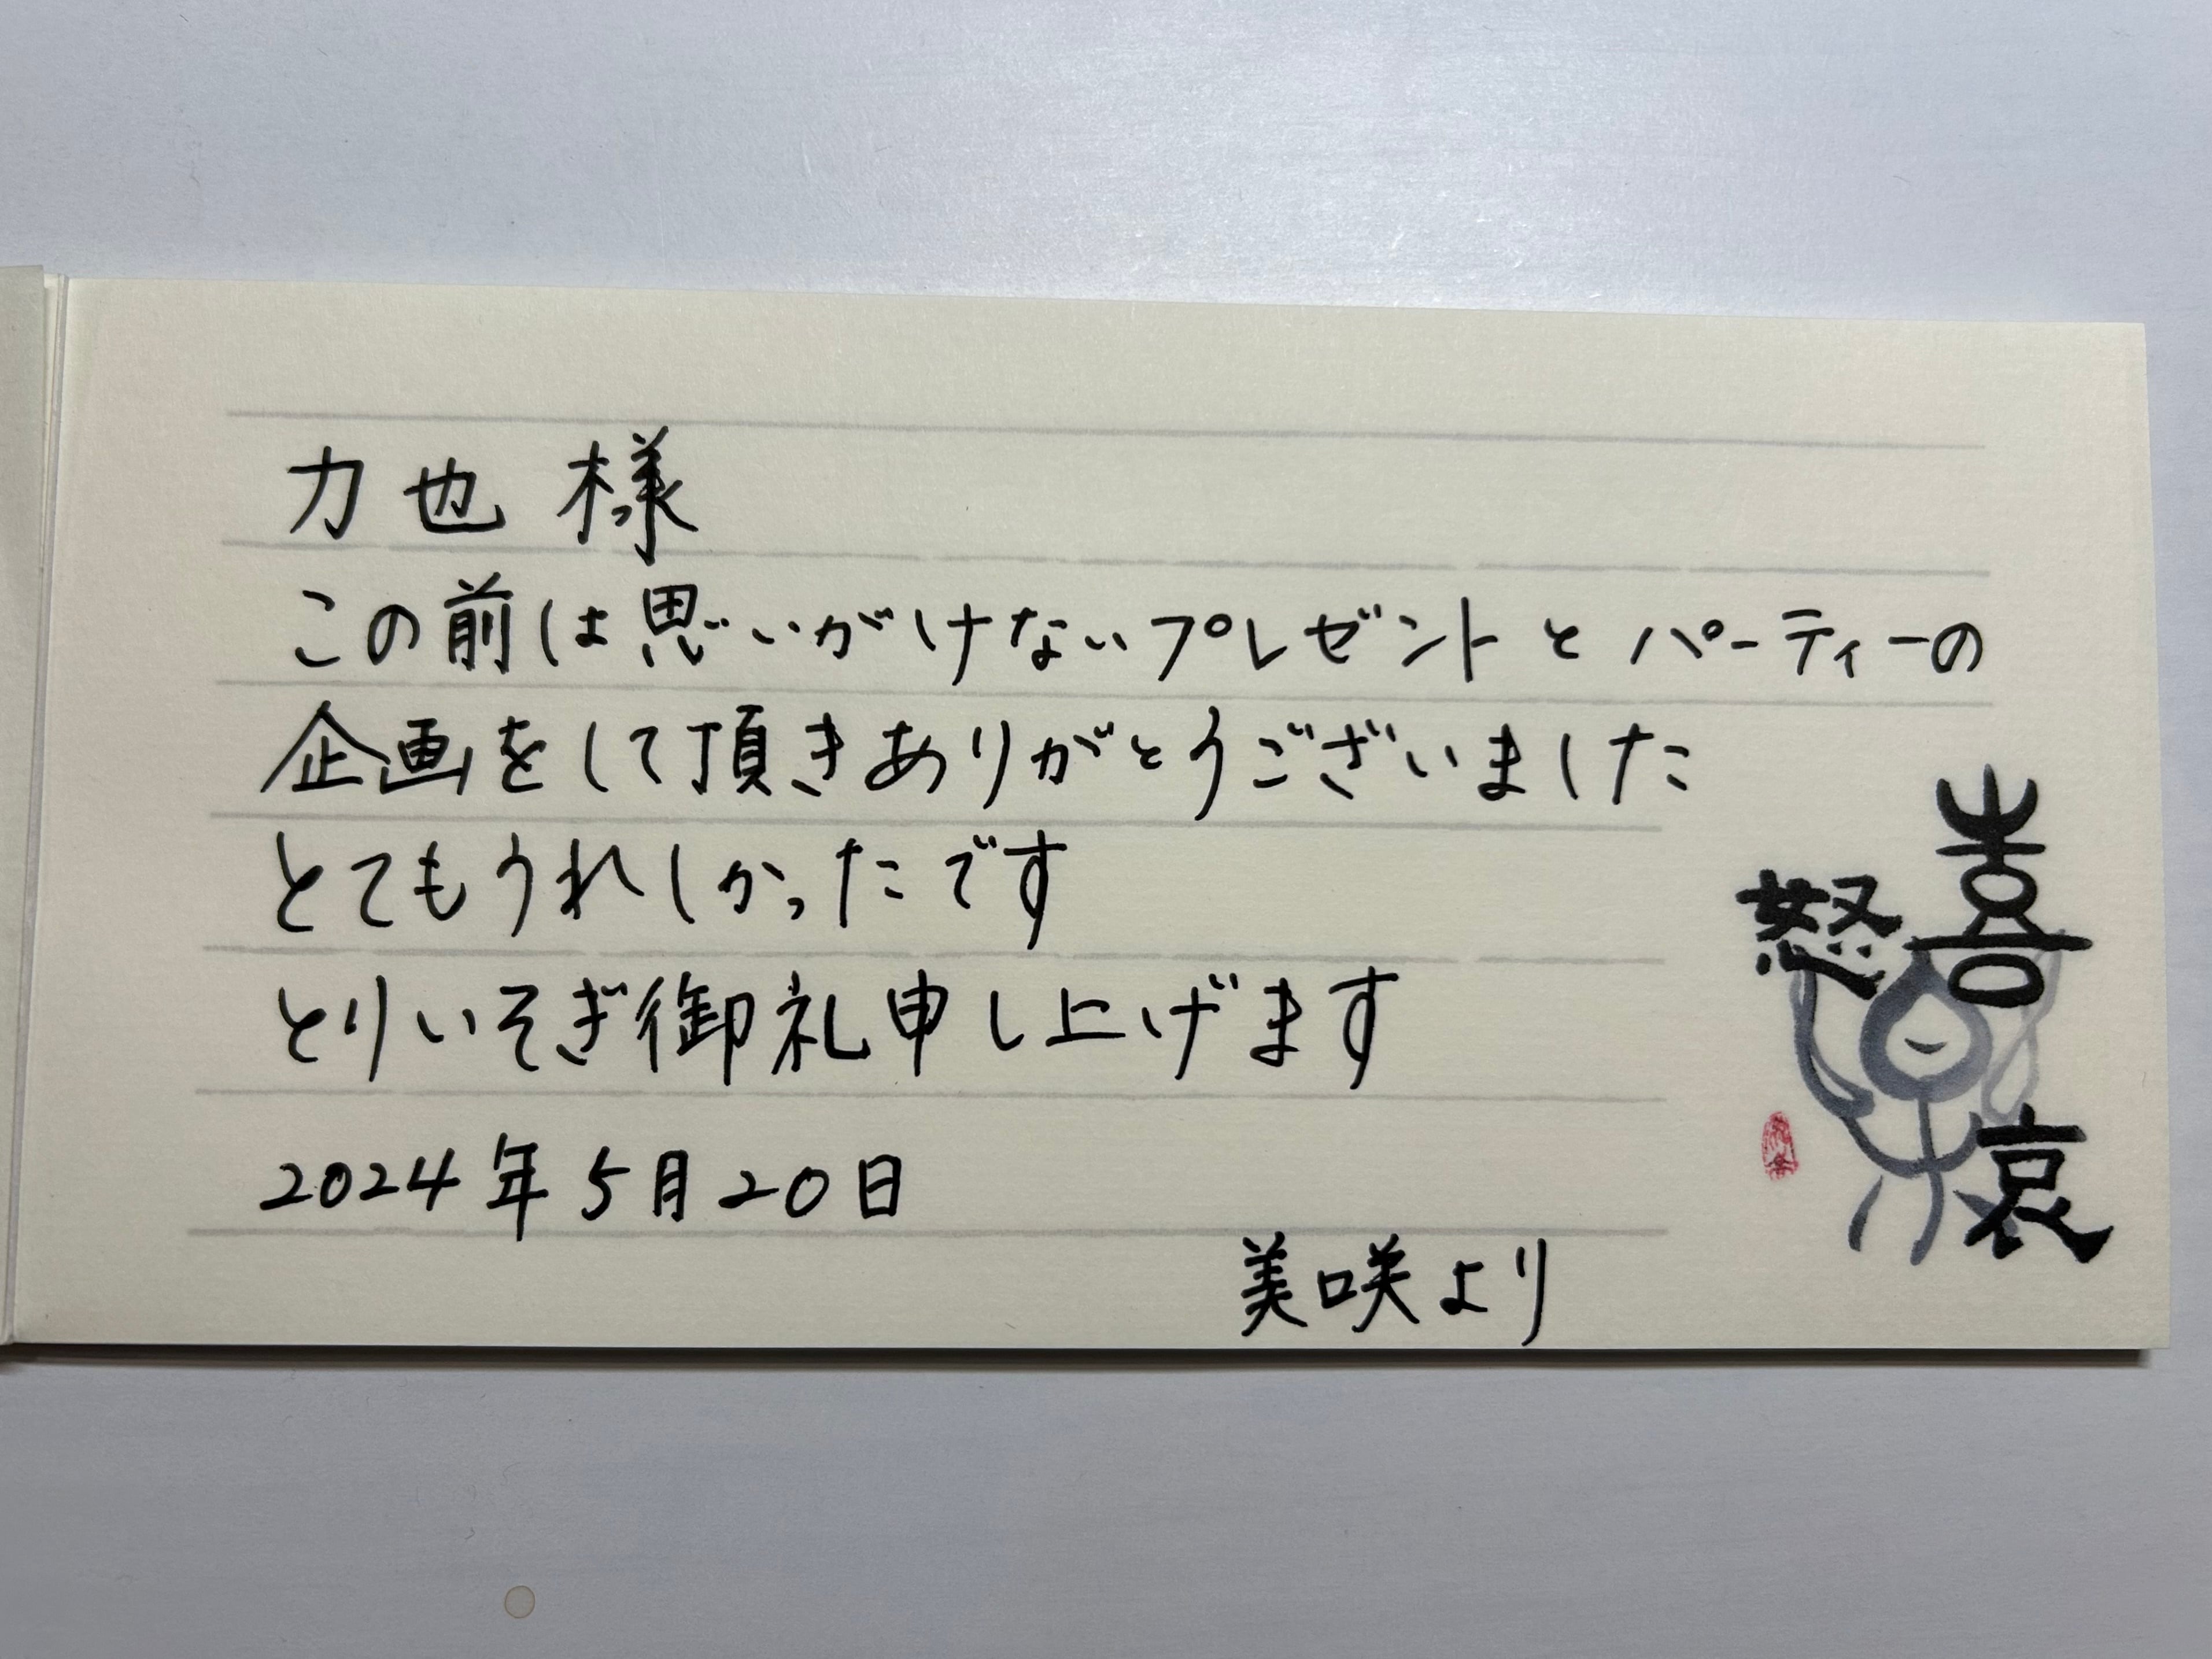 力也 様
この前は思いがけないプレゼントとパーティーの
企画をして頂きありがとうございました
とてもうれしかったです
とりいそぎ御礼申し上げます
2024年5月20日
美咲より
喜
怒
哀